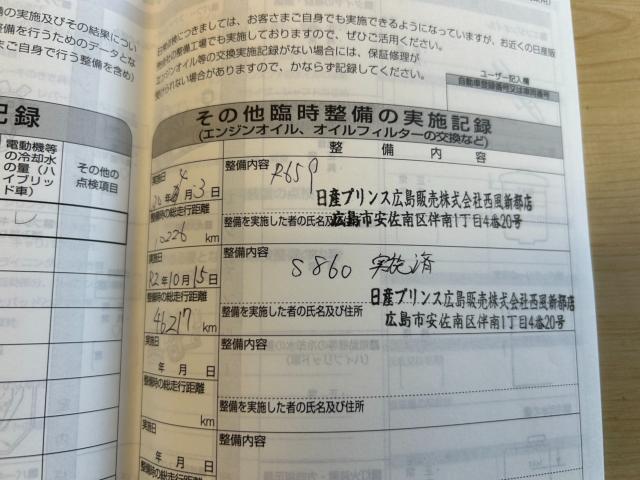 の実施及びその結果につい
整備を行うためのデータとな
まご自身で行う整備を含め)
定期点検につきましては、お客さまご自身でも実施できるようになっていますが、お近くの日産販
売会社の整備工場でも実施しておりますので、ぜひご活用ください。
エンジンオイル等の交換実施記録がない場合には、保証修理が
受けられない場合がありますので、かならず記録してください。
ユーザー記入欄
自動車登録番号又は車両番号
記録
電動機等
の冷却水
の量(ハ
イブリッ
ド車)
その他の
点検項目
その他臨時整備の実施記録
(エンジンオイル、オイルフィルターの交換など)
整備内容
実施日
年 月 3日
整備時の総走行距離
km
整備内容
R659
日産プリンス広島販売株式会社西風新都店
整備を実施した者の氏名及び住所
広島市安佐南区伴南1丁目4番20号
実施日
R2年10月15日
整備時の総走行距離
46217 km
整備内容
S860 実施済
日産プリンス広島販売株式会社西風新都店
整備を実施した者の氏名及び住所
広島市安佐南区伴南1丁目4番20号
実施日
年 月 日
整備時の総走行距離
km
整備内容
整備を実施した者の氏名及び住所
実施日
年 月 日
整備時の総走行距離
整備内容